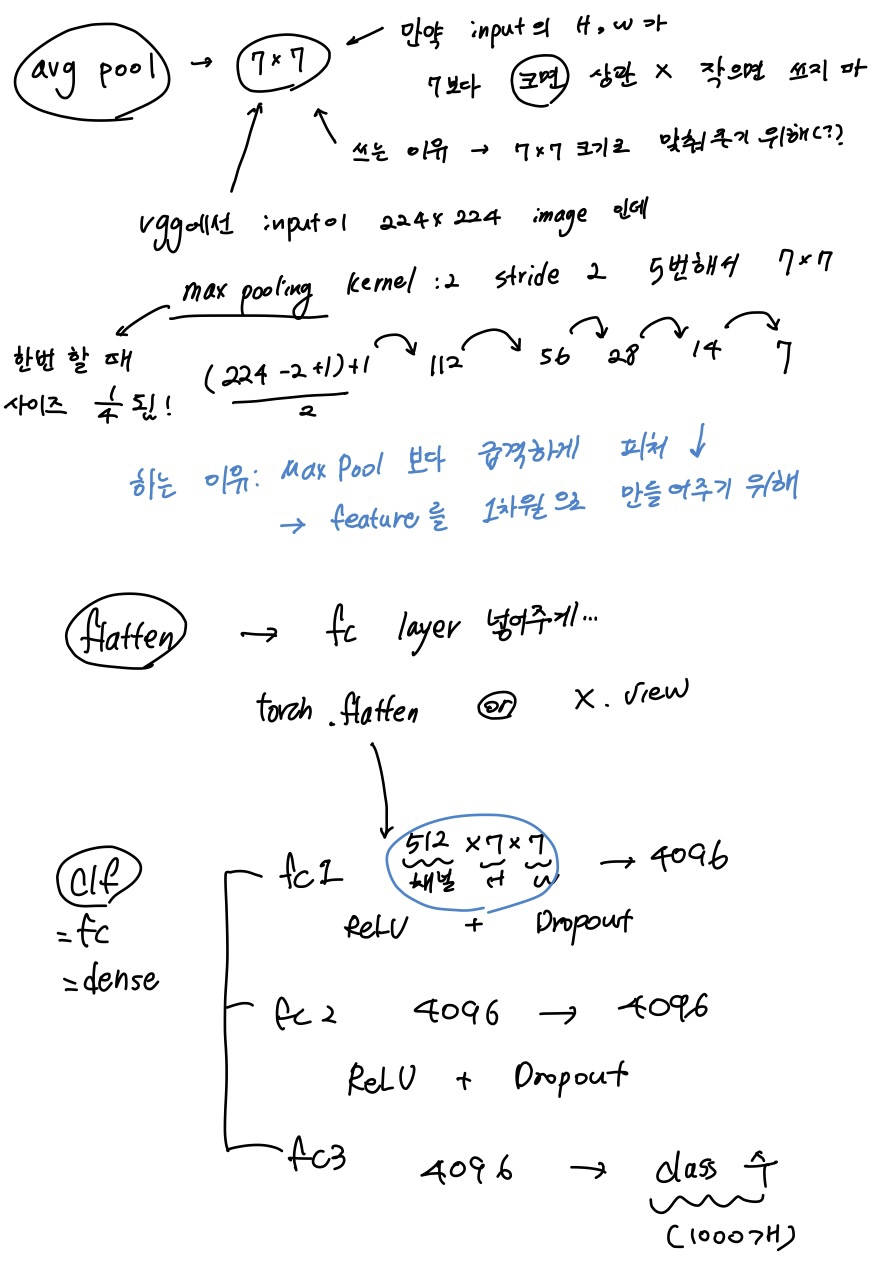 avg pool → 7×7 ← 만약 input의 H, W가
7보다 크면 상관 × 작으면 쓰지 마
쓰는 이유 → 7×7 크기로 맞춰주기 위해(??)
vgg에선 input이 224×224 image 인데
max pooling kernel : 2 stride 2 5번해서 7×7
한번 할 때
사이즈 1/4 됨!
(224 -2 +1)+1 / 2 112 56 28 14 7
하는 이유: Max Pool 보다 급격하게 피처 ↓
→ feature를 1차원으로 만들어주기 위해
flatten → fc layer 넣어주게...
torch.flatten or x.view
clf
=fc
=dense
fc1 512 ×7×7 → 4096
채널 H W
ReLU + Dropout
fc2 4096 → 4096
ReLU + Dropout
fc3 4096 → class 수
(1000개)